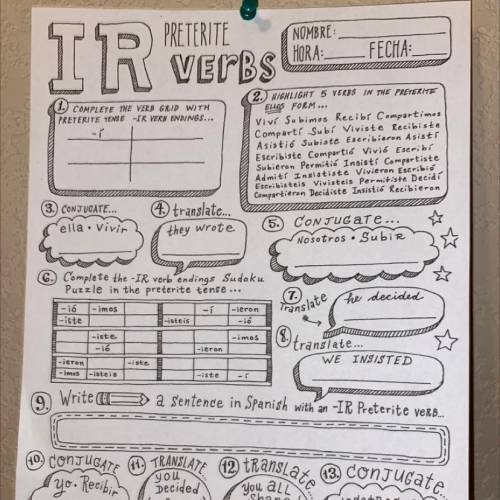 IR PRETERITE VERBS
NOMBRE:
HORA: FECHA:
1. COMPLETE THE VERB GRID WITH
PRETERITE TENSE -IR VERB ENDINGS...
-í
2. HIGHLIGHT 5 VERBS IN THE PRETERITE
ELLOS FORM...
Viví Subimos Recibí Compartimos
Compartí Subí Viviste Recibiste
Asistió Subiste Escribieron Asistí
Escribiste Compartió Vivió Escribí
Subieron Permitió Insistí Compartiste
Admití Insististe Vivieron Escribió
Escribisteis Vivisteis Permitiste Decidí
Compartieron Decidiste Insistió Recibieron
3. CONJUGATE...
ella • Vivir
4. translate...
they wrote
5. CONJUGATE...
Nosotros • Subir
6. Complete the -IR verb endings Sudoku
Puzzle in the preterite tense...
-ió -imos -í -ieron
-iste -isteis -ió
-iste -imos
-ió -ieron
-ieron -iste
-imos -isteis -iste -í
7. Translate
he decided
8. translate...
WE INSISTED
9. Write a sentence in Spanish with an -IR Preterite verb...
10. CONJUGATE
yo • Recibir
11. TRANSLATE
you
Decided
12. translate
you all
13. CONJUGATE...